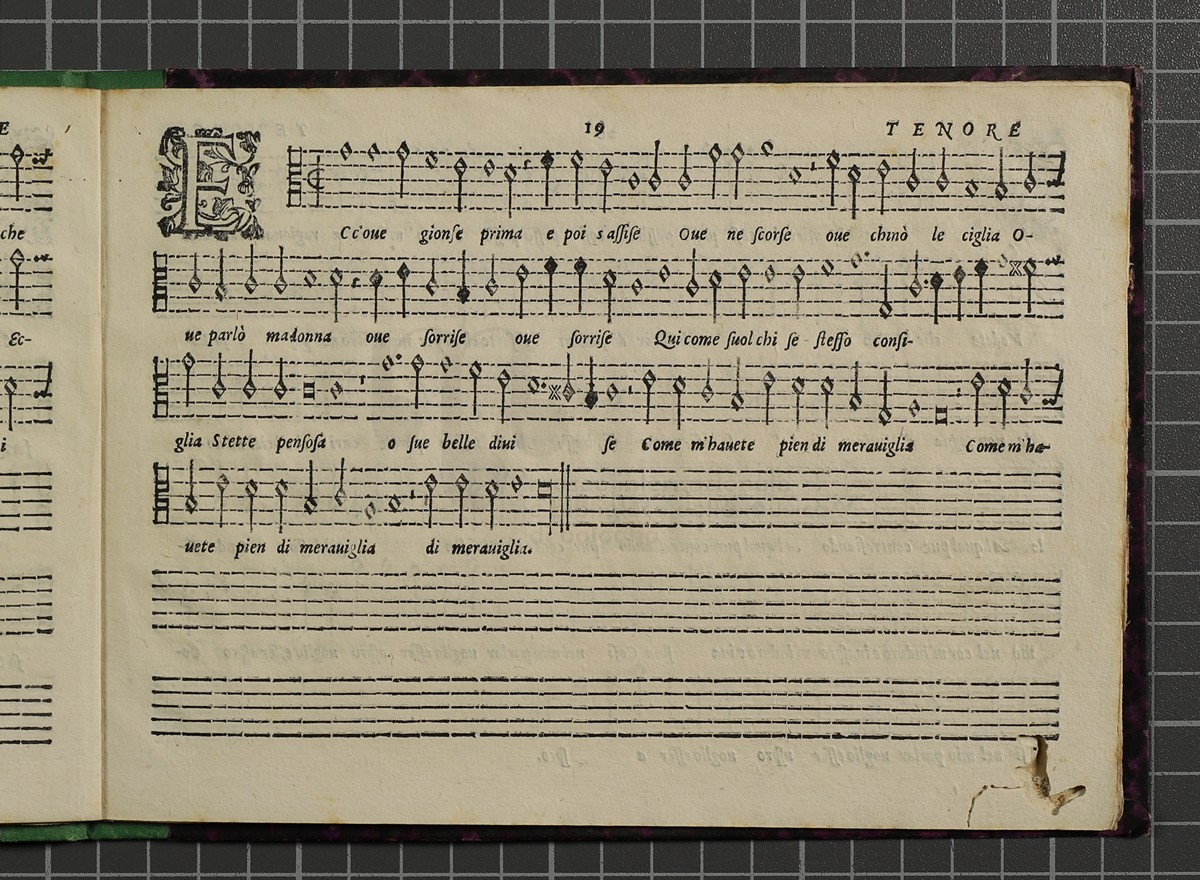 E
19 TENORE
ECc'oue gionſe prima e poi s'aſſiſe Oue ne ſcorſe oue chinò le ciglia O-
che
ue parlò madonna oue ſorriſe oue ſorriſe Qui come ſuol chi ſe ſteſſo conſi-
Ec-
glia Stette penſoſa o ſue belle diui ſe Come m'hauete pien di merauiglia Come m'ha-
i
uete pien di merauiglia di merauiglia.